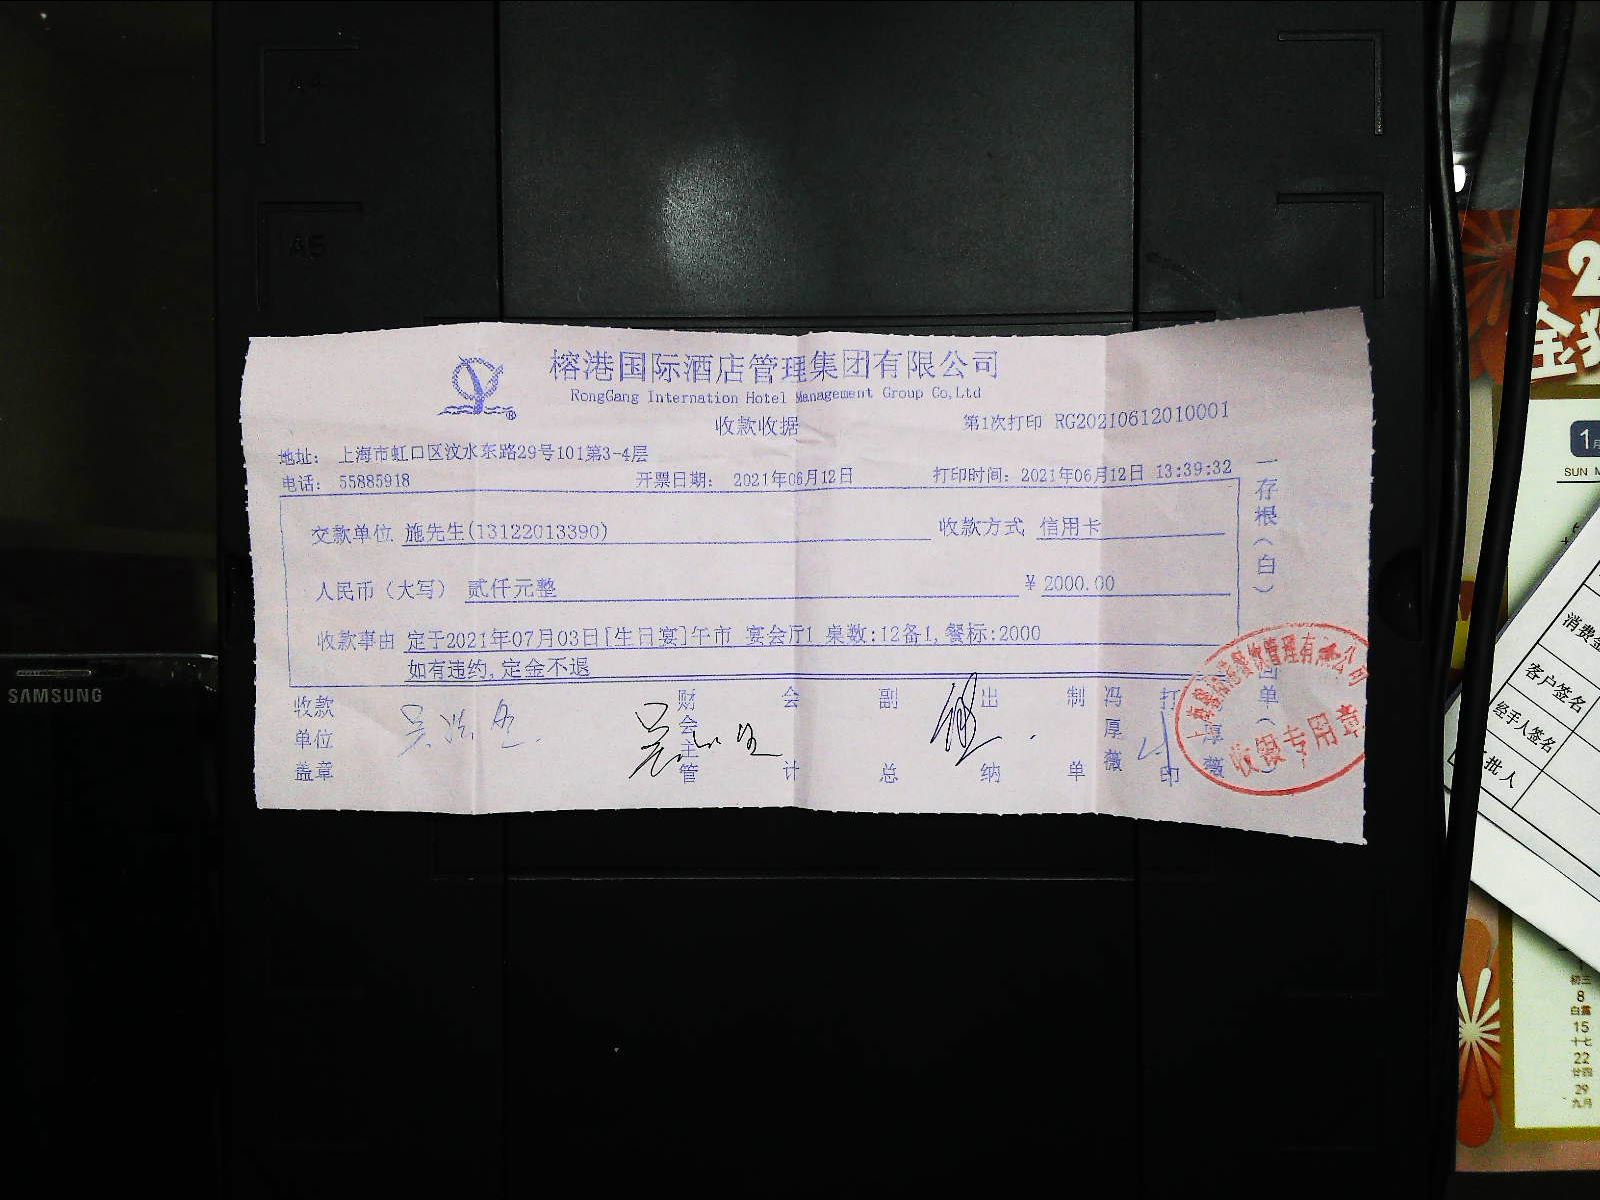 榕港国际酒店管理集团有限公司
RongGang Internation Hotel Management Group Co,Ltd
收款收据
第1次打印 RG20210612010001
地址： 上海市虹口区汶水东路29号101第3-4层
电话： 55885918
开票日期： 2021年06月12日
打印时间：2021年06月12日 13:39:32
交款单位 施先生(13122013390)
收款方式 信用卡
人民币（大写） 贰仟元整
¥ 2000.00
收款事由 定于2021年07月03日[生日宴]午市 宴会厅1 桌数:12备1,餐标:2000
如有违约,定金不退
收款单位盖章
财会主管
会计
副总
出纳
制单
冯厚薇
打印
厚薇
一存根（白）
回单（
餐饮管理有限公司
收银专用章
A5
SAMSUNG
1月
SUN
消费金
客户签名
经手人签名
批人
初三
8
白露
15
十七
22
廿四
29
九月